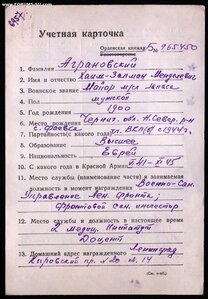 WWW.FORUMS-SU.COM
Учетная карточка
Орденская книжка Б № 965450
1. Фамилия Аграновский
2. Имя и отчество Хаим-Залман Менделевич
3. Воинское звание Майор м/сл запаса
4. Пол мужской
5. Год рождения 1900
6. Место рождения Черниг. обл. Н. Север. р-н
7. Партийность(с какого года) чл. ВКП(б) с 1944 г.
8. Образование Высшее
9. Национальность Еврей
10. С какого года в Красной Армии VII-41 - XI-45
11. Место службы (наименование части) и занимаемая
должность в момент награждения Военно-Сан.
Управление Лен. фронта,
фронтовой сан. инспектор
12. Место службы и должность в настоящее время
2 Медиц. Институт
Доцент
13. Домашний адрес награжденного Ленинград
Кировский пр. №20 кв. 14
(См. н-об.)